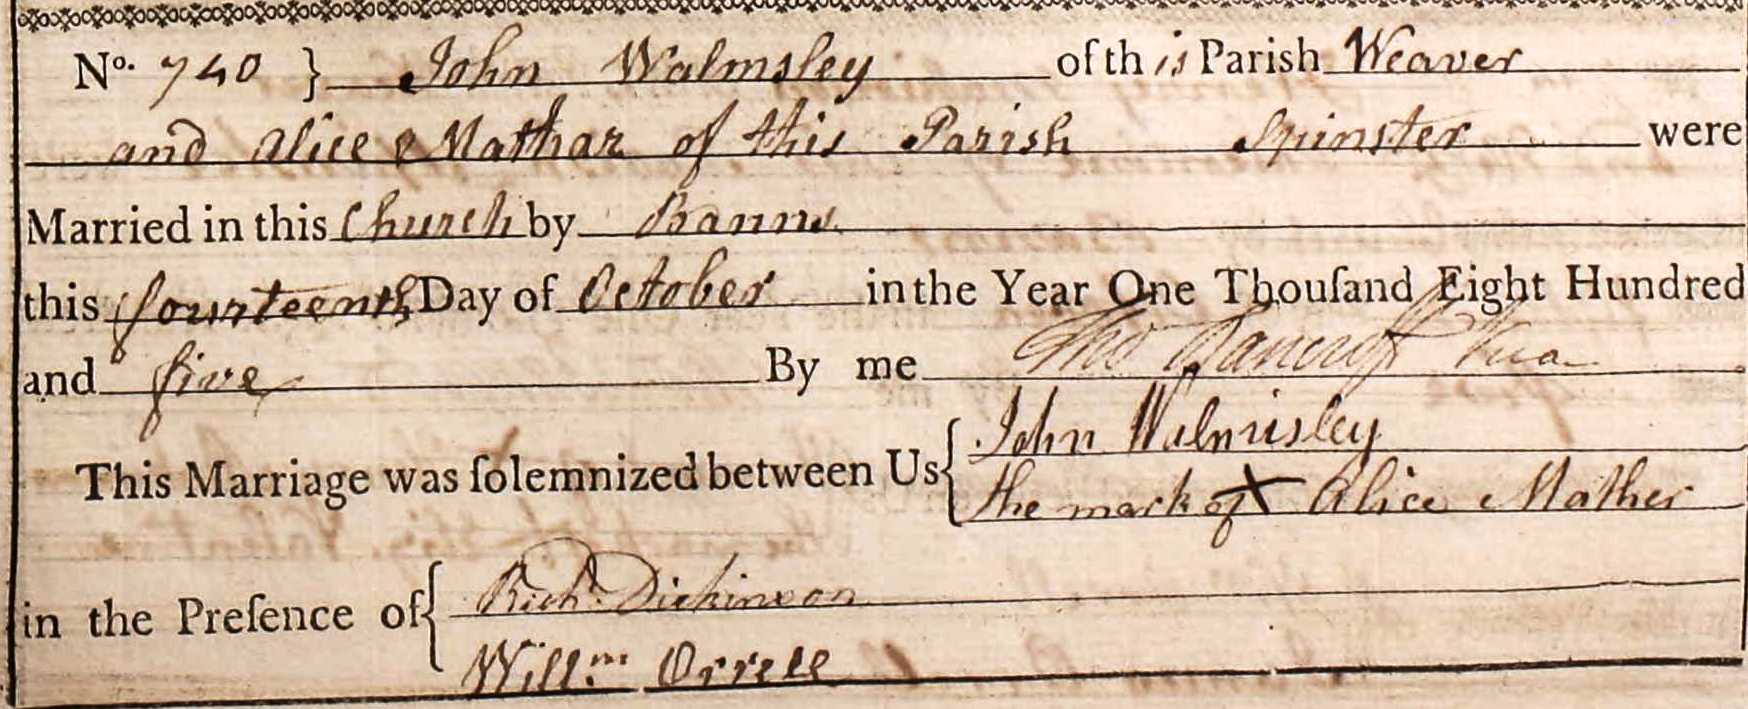 No. 740 } John Walmsley of this Parish Weaver
and Alice Mathar of this Parish Spinster were
Married in this Church by Banns
this fourteenth Day of October in the Year One Thouſand Eight Hundred
and five By me Tho Bancroft Vica
This Marriage was ſolemnized between Us { John Walmisley
the mark of X Alice Mather
in the Preſence of { Richd. Dickinson
Willm. Orrell